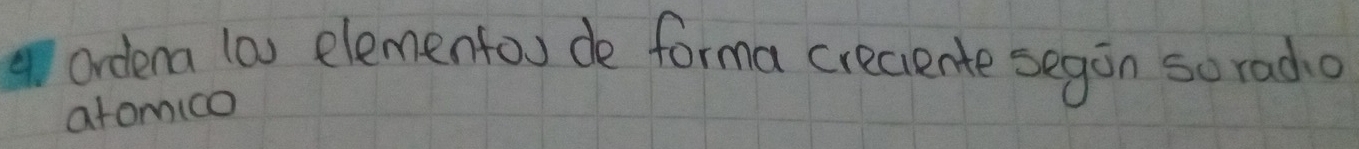 4. Ordena los elementos de forma creciente según so radio
atomico